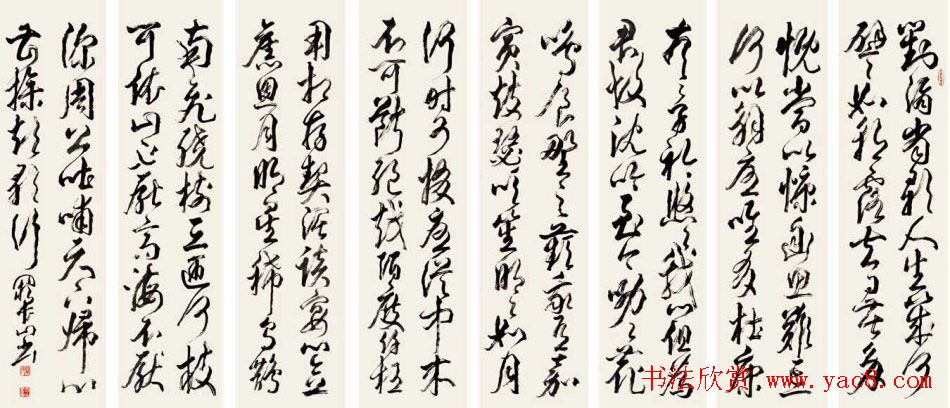 對酒當歌人生幾何
譬如朝露去日苦多
慨當以慷幽思難忘
何以解憂唯有杜康
青青子衿悠悠我心但為
君故沈吟至今呦呦鹿
鳴食野之蘋我有嘉
賓鼓瑟吹笙明明如月
何時可掇憂從中來
不可斷絕越陌度阡枉
用相存契闊談宴心念
舊恩月明星稀烏鵲
南飛繞樹三匝何枝
可依山不厭高海不厭
深周公吐哺天下歸心
曹操短歌行
书法欣赏 www.yac8.com